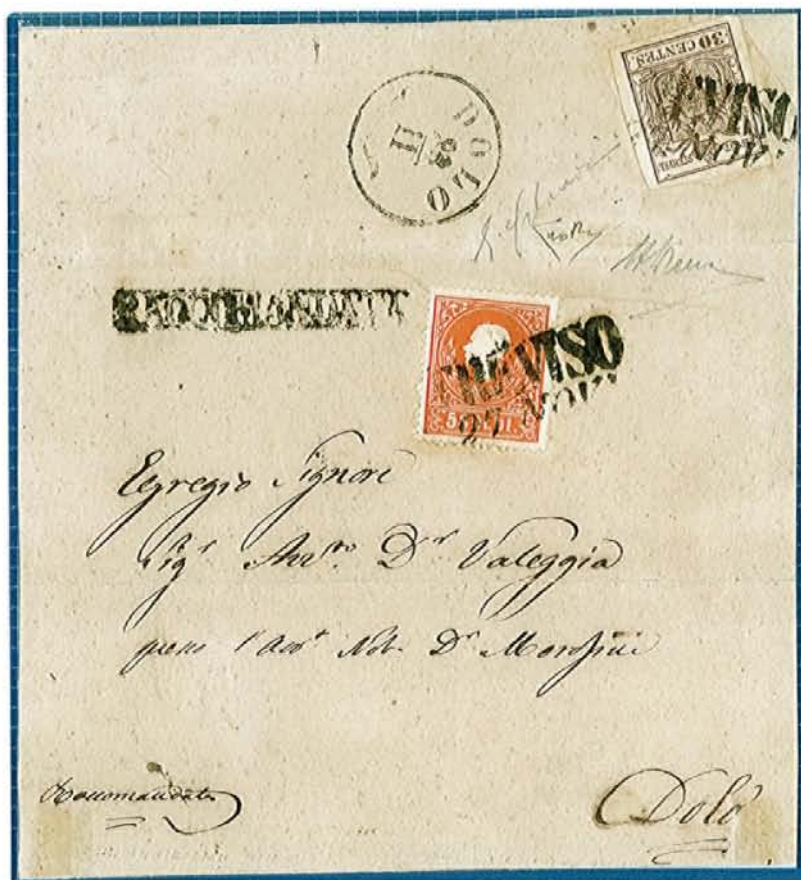 30 CENTES.
TREVISO
DOLO
11
RACCOMANDATA
TREVISO
27
5 SOLDI.
Egregio Signore
Sigr Antto. Dr Valeggia
presso l'Avvt Not. Dr Morosini
Raccomandata
Dolo